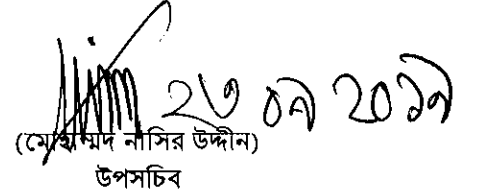 ২৩ ০৯ ২০১৯
(মোহাম্মদ নাসির উদ্দীন)
উপসচিব